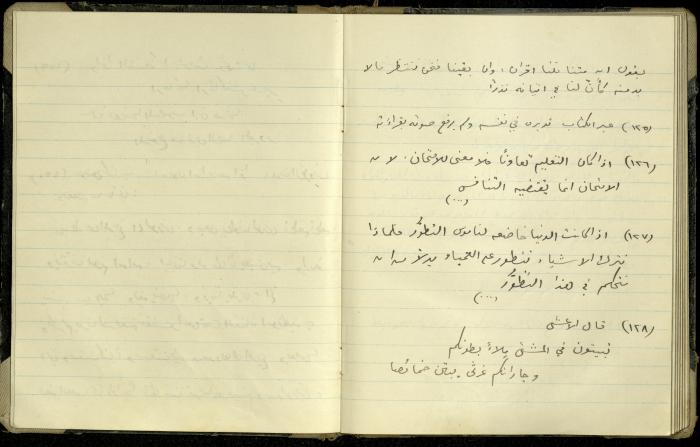 يقول ان متنا تلنا اقران ، وان بقينا فنحن ننتظر مالا
بد منه كأن لنا في اتيانه نذرا
(١٢٥) عبر الكتاب تدبره في نفسه ولم يرفع صوته بقراءته
(١٢٦) اذا كان التعليم تعاونًا فلا معنى للامتحان . لان
الامتحان انما يقتضيه التنافس
(...)
(١٢٧) اذا كانت الدنيا خاضعه لناموس التطوُّر فلماذا
نترك الاشياء تتطور على العمياء بدلًا من ان
نتحكم في هذا التطوُّر
(...)
(١٢٨) قال الاعشى
تبيتون في المشتى ملاءً بطونكم
وجاراتكم غرثى يبتن خمائصا